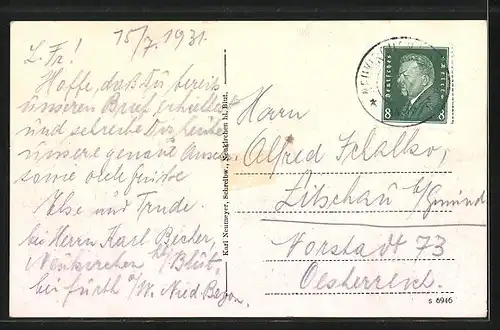 15/7. 1931.
L. Fr!
Hoffe, daß Du bereits
unseren Brief erhieltest
und schreibe Dir heute
unsere genaue
sowie viele Grüße
Else und Trude.
bei Herrn Karl Becher,
Neukirchen b/Blut.
bei Furth a/W. Nied. Bayern.
Karl Neumeyer, Schreibw., Neukirchen hl. Blut.
Deutsches Reich
8 8
Herrn
Alfred
Litschau b/Gmünd
Vorstadt 73
Oesterreich.
s 6946